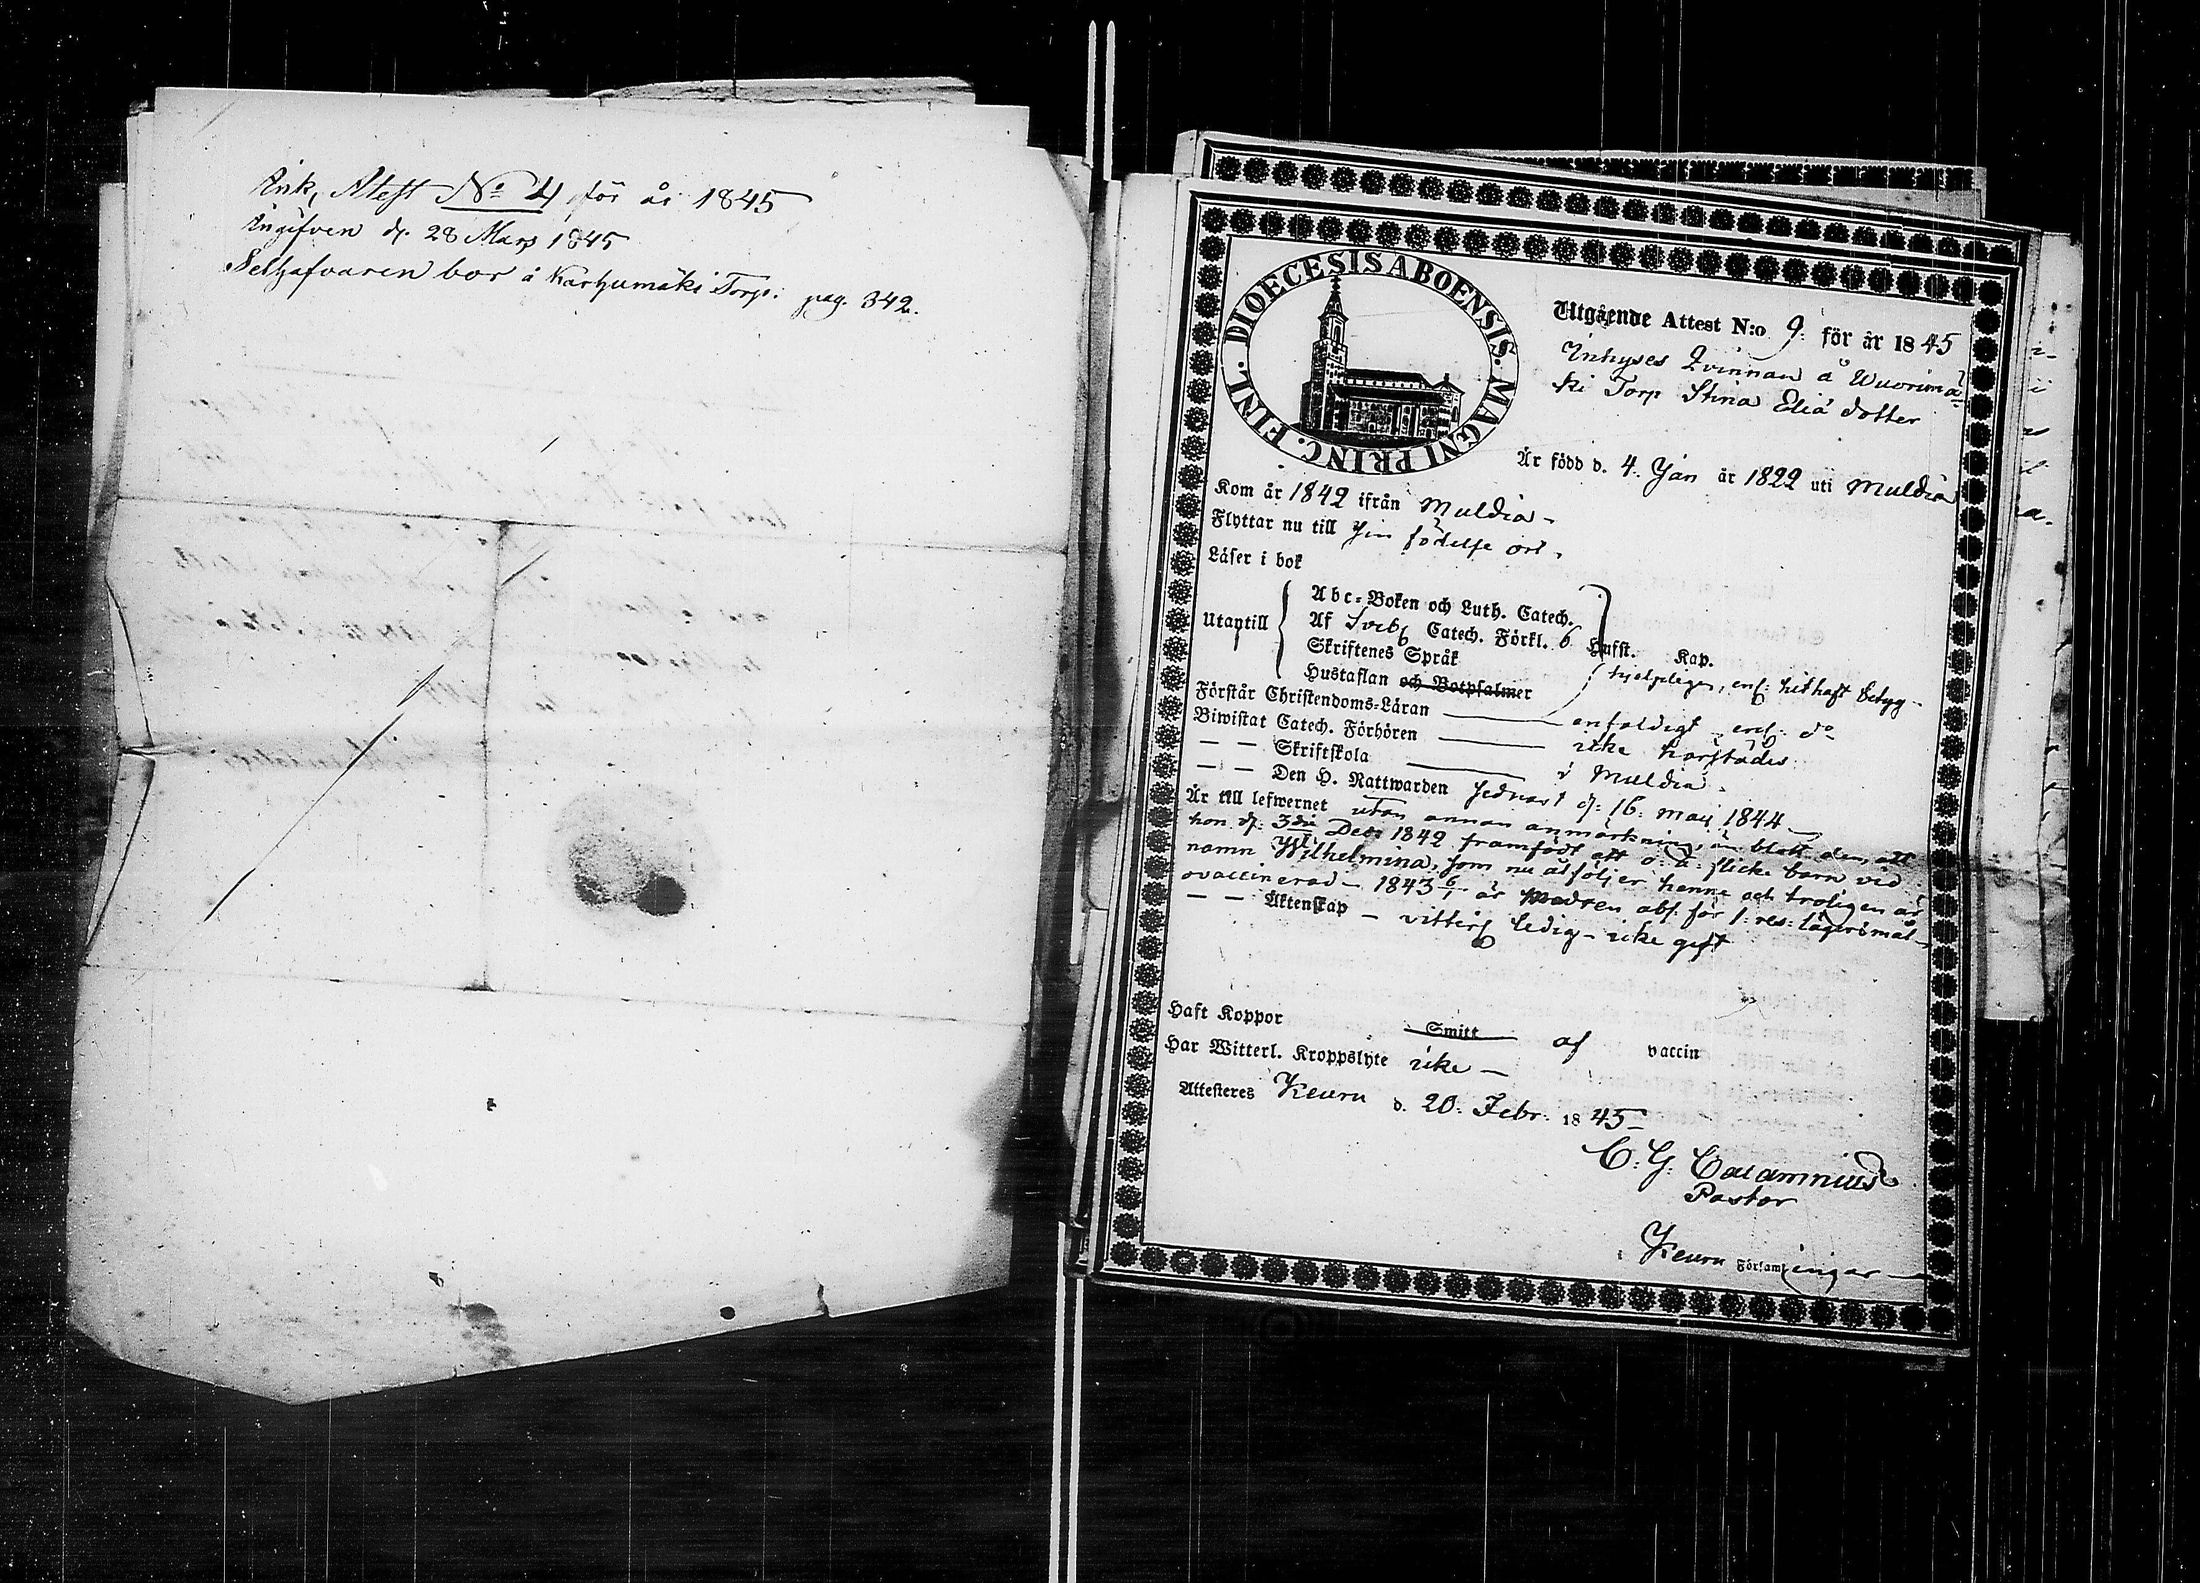 Ink. Attest No 4 för år 1845
Ingifven d. 28 Mars 1845
Bethafvaren bor å Karhumäki Torp. pag. 342.
DIOECESIS ABOENSIS. MAGNI PRINC. FINL.
Utgående Attest N:o 9. för år 1845
Inhyses Qvinnan å Wuorimä-
ki Torp Stina Eliæ dotter
Är född d. 4. Jan år 1822 uti Muldia
Kom år 1842 ifrån Muldia -
Flyttar nu till sin födelse ort.
Läser i bok
Utantill
Abc-Boken och Luth. Catech.
Af Sveb. Catech. Förkl. 6 Hufst. Kap.
Skriftenes Språk
Hustaflan och Botpsalmer hjelpligen, enl. hithaft betyg -
Förstår Christendoms-Läran enfaldigt enl. do
Biwistat Catech. Förhören icke härstädes
— — Skriftskola i Muldia
— — Den H. Nattwarden sednast d. 16. maij 1844
Är till lefwernet utan annan anmärkning, än blott den, att
hon d: 3die Decr 1842 framfödt ett o: ä: flicke barn vid
namn Wilhelmina, som nu åtföljer henne och troligen är
ovaccinerad - 1843 6/1 är Modren abs. för 1: res: lägersmål -
— — Äktenskap - vitterl. ledig - icke gift
Haft Koppor Smitt af vaccin
Har Witterl. Kroppslyte icke -
Attesteres Keuru d. 20. Febr. 1845
C. G. Calamnius
Pastor
i Keuru Församlingar